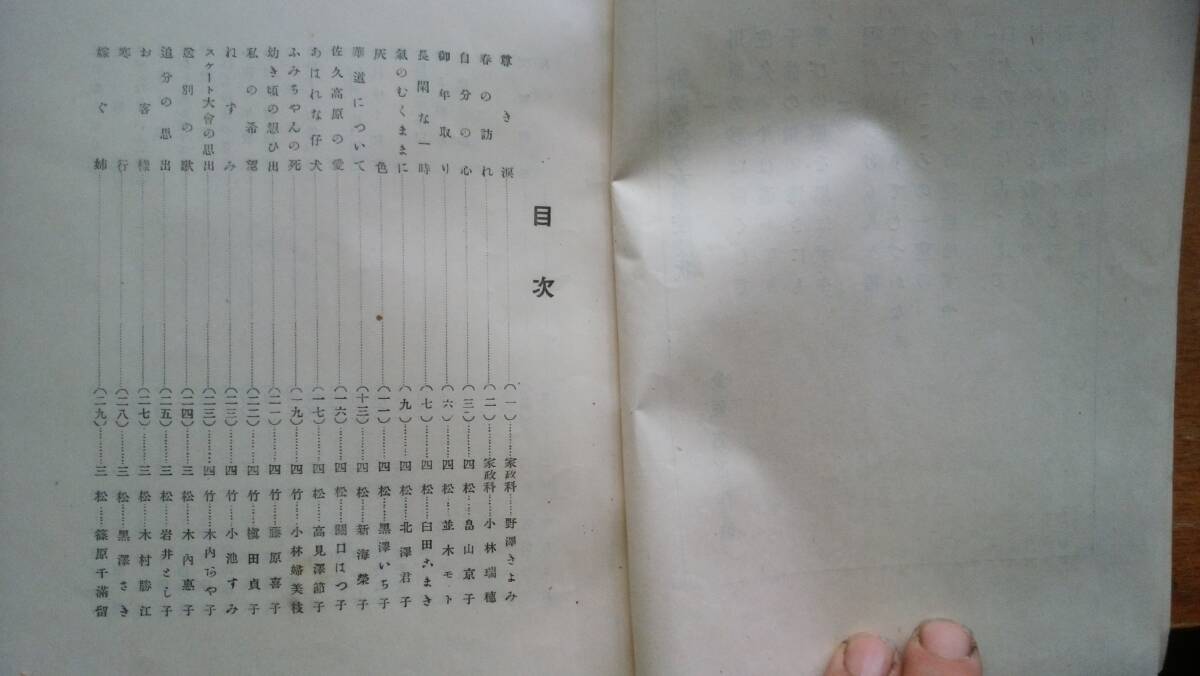 目次
尊き涙……(一)……家政科……野澤きよみ
春の訪れ……(二)……家政科……小林瑞穂
自分の心……(三)……四松……畠山京子
御年取り……(六)……四松……並木モト
長閑な一時……(七)……四松……臼田こまき
氣のむくままに……(九)……四松……北澤君子
灰色……(一一)……四松……黒澤いち子
華道について……(十三)……四松……新海榮子
佐久高原の愛……(一六)……四松……關口はつ子
あはれな仔犬……(一七)……四松……高見澤節子
ふみちやんの死……(一九)……四竹……小林婦美枝
幼き頃の想ひ出……(二一)……四竹……藤原喜子
私の希望……(二二)……四竹……槇田貞子
れすみ……(二三)……四竹……小池すみ
スケート大會の思出……(二三)……四竹……木内らや子
惣別の歌……(二四)……三松……木內惠子
追分の思出……(二五)……三松……岩井とし子
お客樣……(二七)……三松……木村勝江
寒行……(二八)……三松……黒澤さき
嫁ぐ姉……(二九)……三松……篠原千滿留